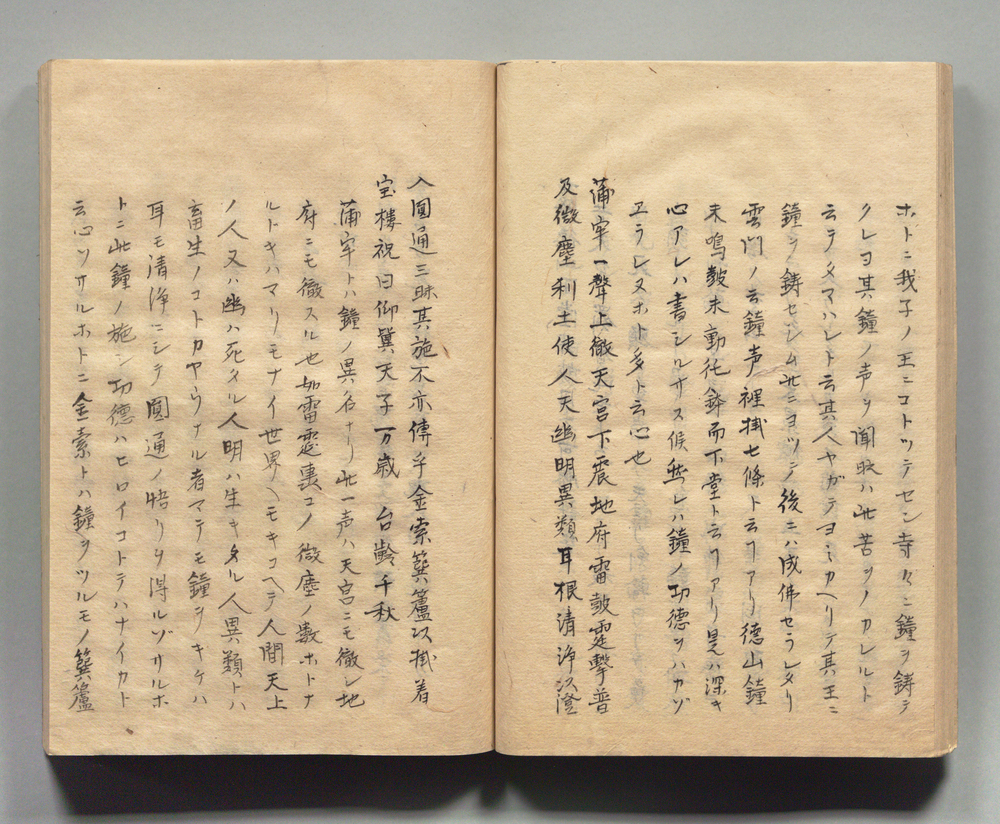 ホドニ我子ノ王ニコトツテセン寺々ニ鐘ヲ鋳テ
クレヨ其鐘ノ声ヲ聞バ此苦ヲノカレルト
云テタマハレト云其人ヤガテヨミカヘリテ其王ニ
鐘ヲ鋳セシム此ニヨツテ後ニハ成佛セラレタリ
雲門ノ云鐘声裡掛七條ト云フアリ德山鐘
未鳴皷未動托鉢而下堂ト云フアリ是ハ深キ
心アレハ書シルサス候然レハ鐘ノ功德ヲハカゾ
エラレヌホト多ト云心也
蒲牢一聲上徹天宮下震地府雷皷霆擊普
及微塵利土使人天幽明異類耳根清浄以澄
入圓通三昧其施不亦傳乎金索簨簴以掛着
宝樓祝曰仰冀天子万歳台齡千秋
蒲牢トハ鐘ノ異名ナリ此一声ハ天宮ニモ徹シ地
府ニモ徹スル也如雷霆裏コノ微塵ノ数ホトナ
ルトキハマリモナイ世界ヘモキコヘテ人間天上
ノ人又ハ幽ハ死タル人明ハ生キタル人異類トハ
畜生ノコトカヤウナル者マテモ鐘ヲキケハ
耳モ清浄ニシテ圓通ノ悟リヲ得ルゾサルホ
トニ此鐘ノ施シ功德ハヒロイコトテハナイカト
云心ソサルホトニ金索トハ鐘ヲツルモノ簨簴